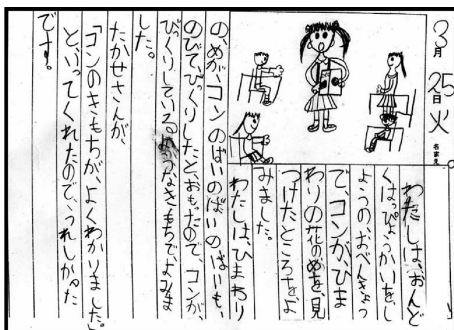 3月25日火
名まえ
わたしは、おんど
くはっぴょうかいをし
ようの、おべんきょう
で、コンが、ひま
わりの花のめを、見
つけたところをよ
みました。
わたしは、ひまわり
の、めが、コンのばいのばいのばいも、
のびて、びっくりしたと、おもったので、コンが、
びっくりしている。
なきもちで、よみま
した。
たかせさんが、
「コンのきもちが、よくわかりました。」
と、いってくれたので、うれしかった
です。